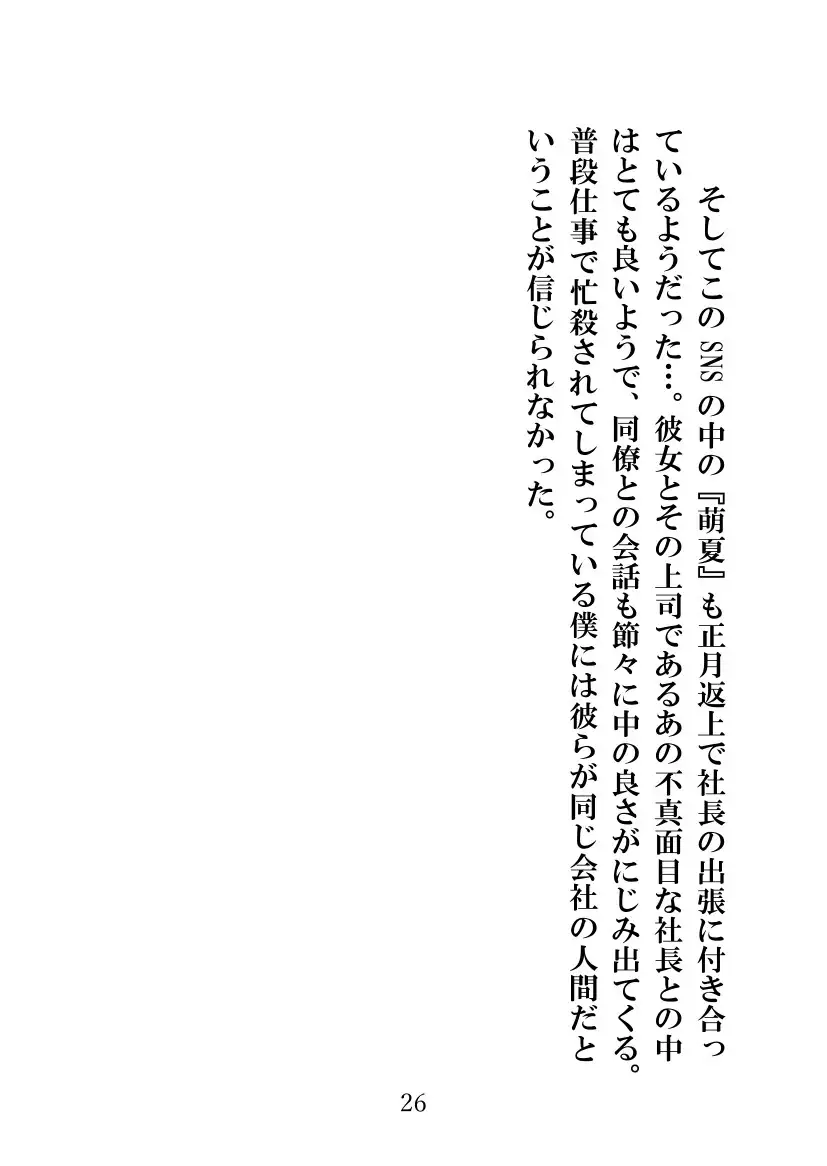 そしてこのSNSの中の『萌夏』も正月返上で社長の出張に付き合っ
ているようだった…。彼女とその上司であるあの不真面目な社長との中
はとても良いようで、同僚との会話も節々に中の良さがにじみ出てくる。
普段仕事で忙殺されてしまっている僕には彼らが同じ会社の人間だと
いうことが信じられなかった。
26